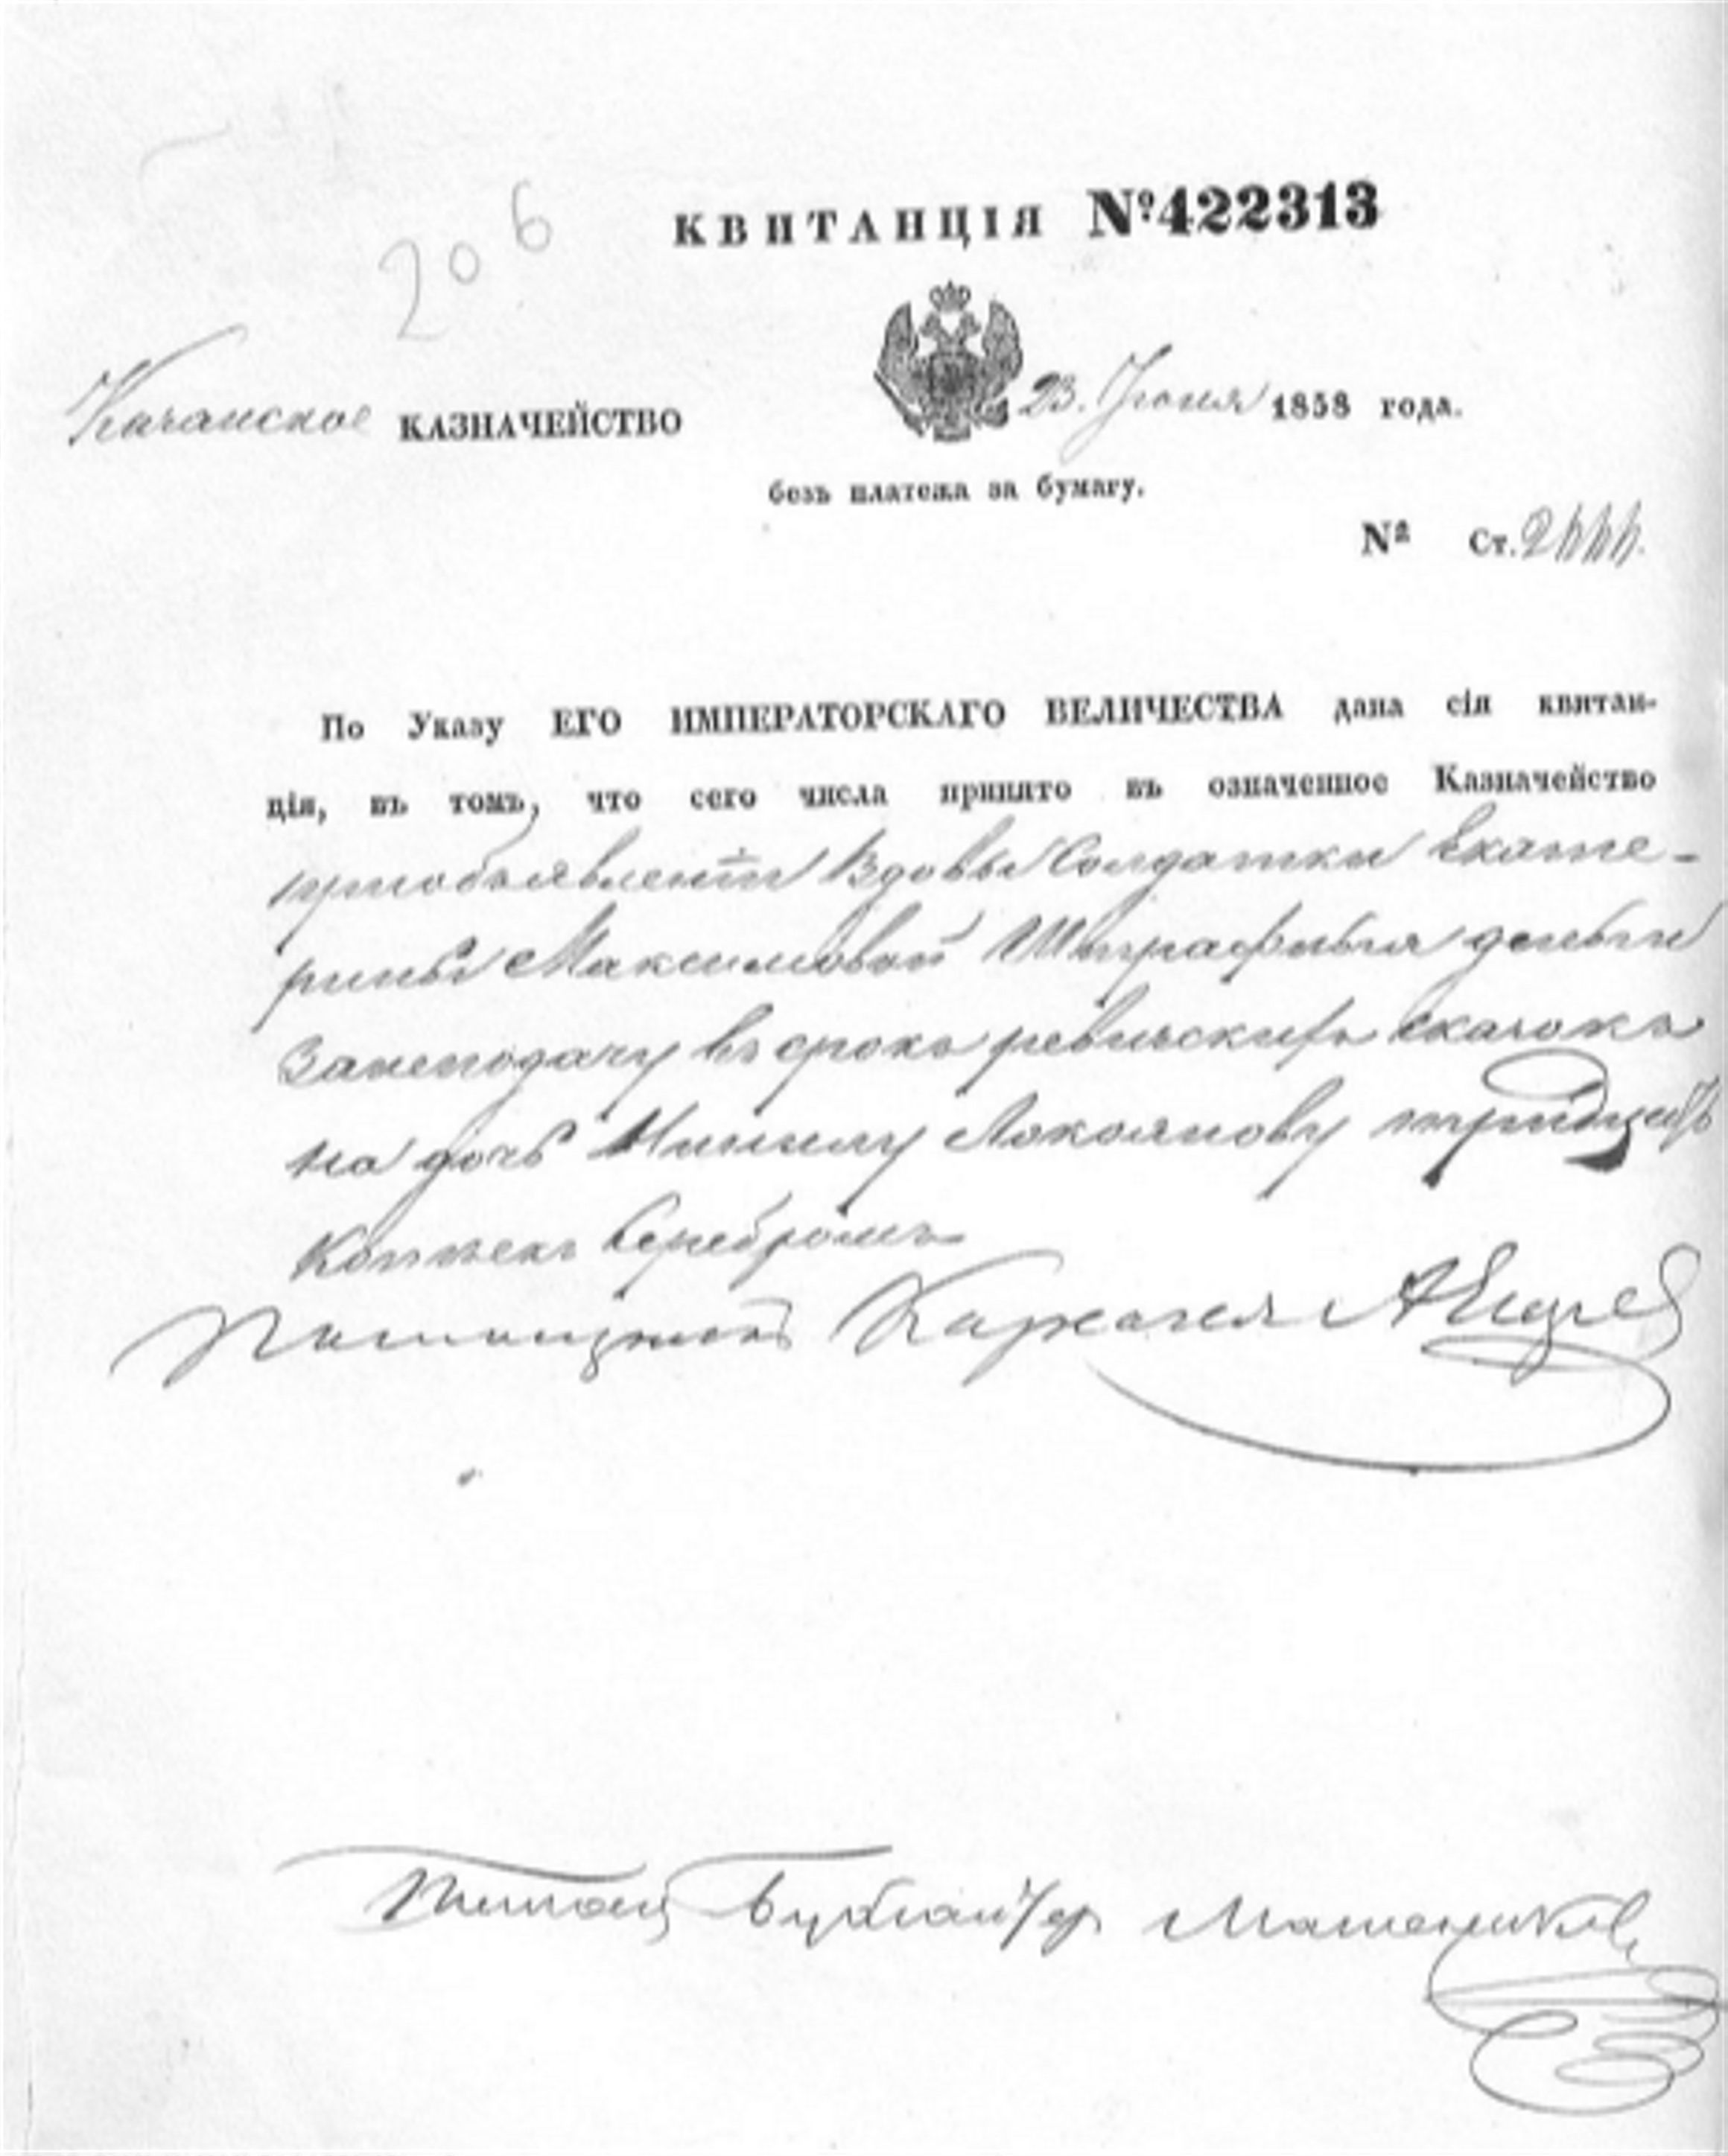 206
КВИТАНЦІЯ №422313
КАЗНАЧЕЙСТВО 23. Іюня 1858 года.
безъ платежа за бумагу.
№ Ст.
По Указу ЕГО ИМПЕРАТОРСКАГО ВЕЛИЧЕСТВА дана сія квитан-
ція, въ томъ, что сего числа принято въ означенное Казначейство
приобъявленіи Вдовы Солдатки Екате-
рины Максимовой Штрафныя деньги
Занеподачу въ срокъ ревизскихъ сказокъ
на дочь Минилу тридцать
Копѣекъ Серебромъ
Казначея
Бухгалтер